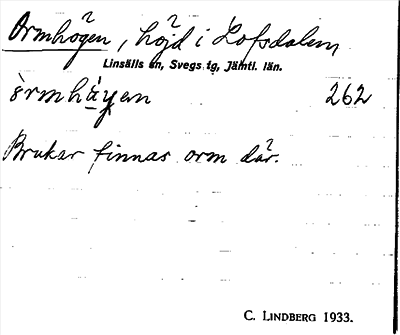 Ormhögen, höjd i Lofsdalen
Linsälls sn, Svegs tg, Jämtl. län.
òrmhä̀γen 262
Brukar finnas orm där.
C. LINDBERG 1933.